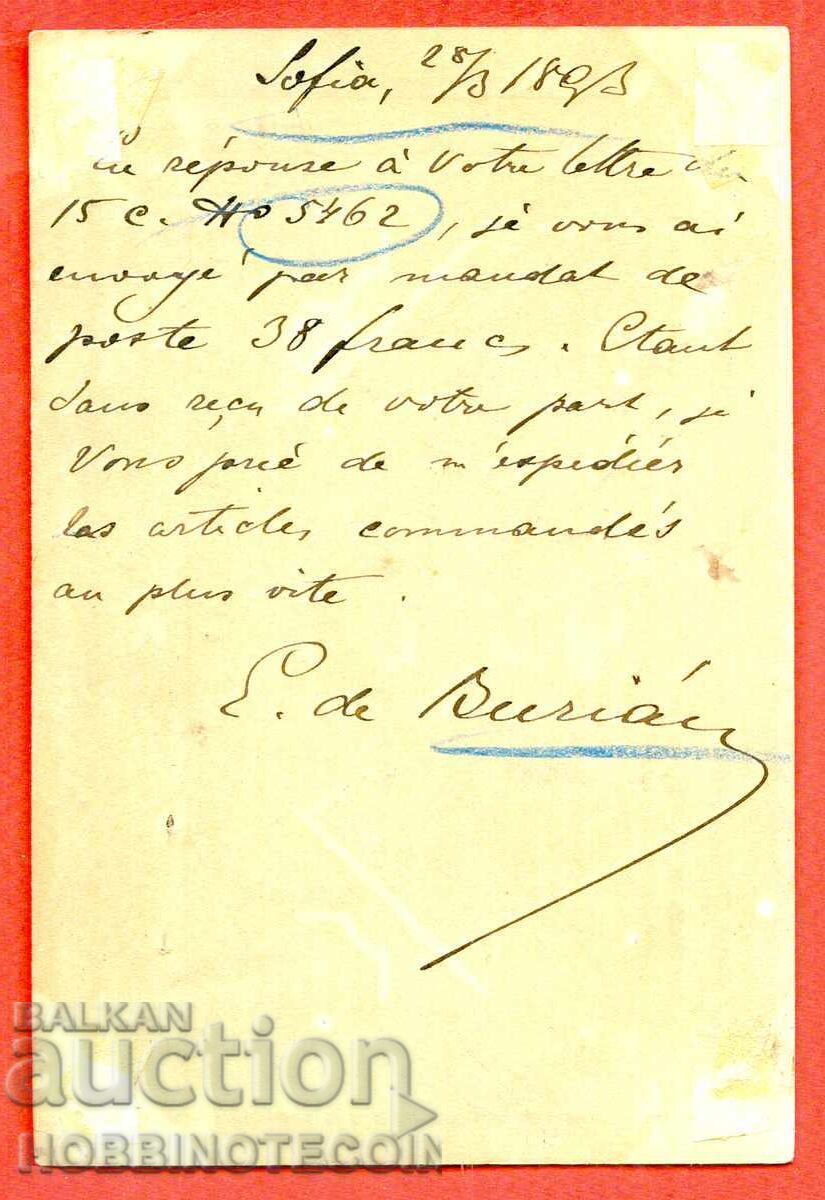 Sofia, 28/3 1893
En réponse à Votre lettre du
15 c. No 5462, je vous ai
envoyé par mandat de
poste 38 francs. Etant
sans reçu de votre part, je
Vous prie de m'espediér
les articles commandés
au plus vite.
E. de Burián
BALKAN
auction
HOBBINOTECOIN